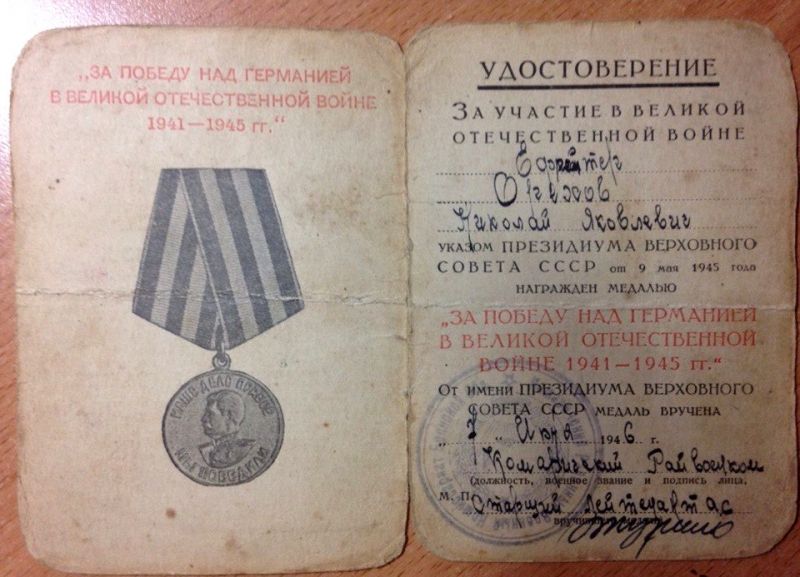 „ЗА ПОБЕДУ НАД ГЕРМАНИЕЙ
В ВЕЛИКОЙ ОТЕЧЕСТВЕННОЙ ВОЙНЕ
1941—1945 гг.“
НАШЕ ДЕЛО ПРАВОЕ
МЫ ПОБЕДИЛИ
УДОСТОВЕРЕНИЕ
ЗА УЧАСТИЕ В ВЕЛИКОЙ
ОТЕЧЕСТВЕННОЙ ВОЙНЕ
Ефрейтер
Николай Яковлевич
УКАЗОМ ПРЕЗИДИУМА ВЕРХОВНОГО
СОВЕТА СССР от 9 мая 1945 года
НАГРАЖДЕН МЕДАЛЬЮ
„ЗА ПОБЕДУ НАД ГЕРМАНИЕЙ
В ВЕЛИКОЙ ОТЕЧЕСТВЕННОЙ
ВОЙНЕ 1941—1945 гг.“
От имени ПРЕЗИДИУМА ВЕРХОВНОГО
СОВЕТА СССР МЕДАЛЬ ВРУЧЕНА
1946 г.
Райвоенком
(должность, военное звание и подпись лица,
М. П.
Старший
вручившего медаль)